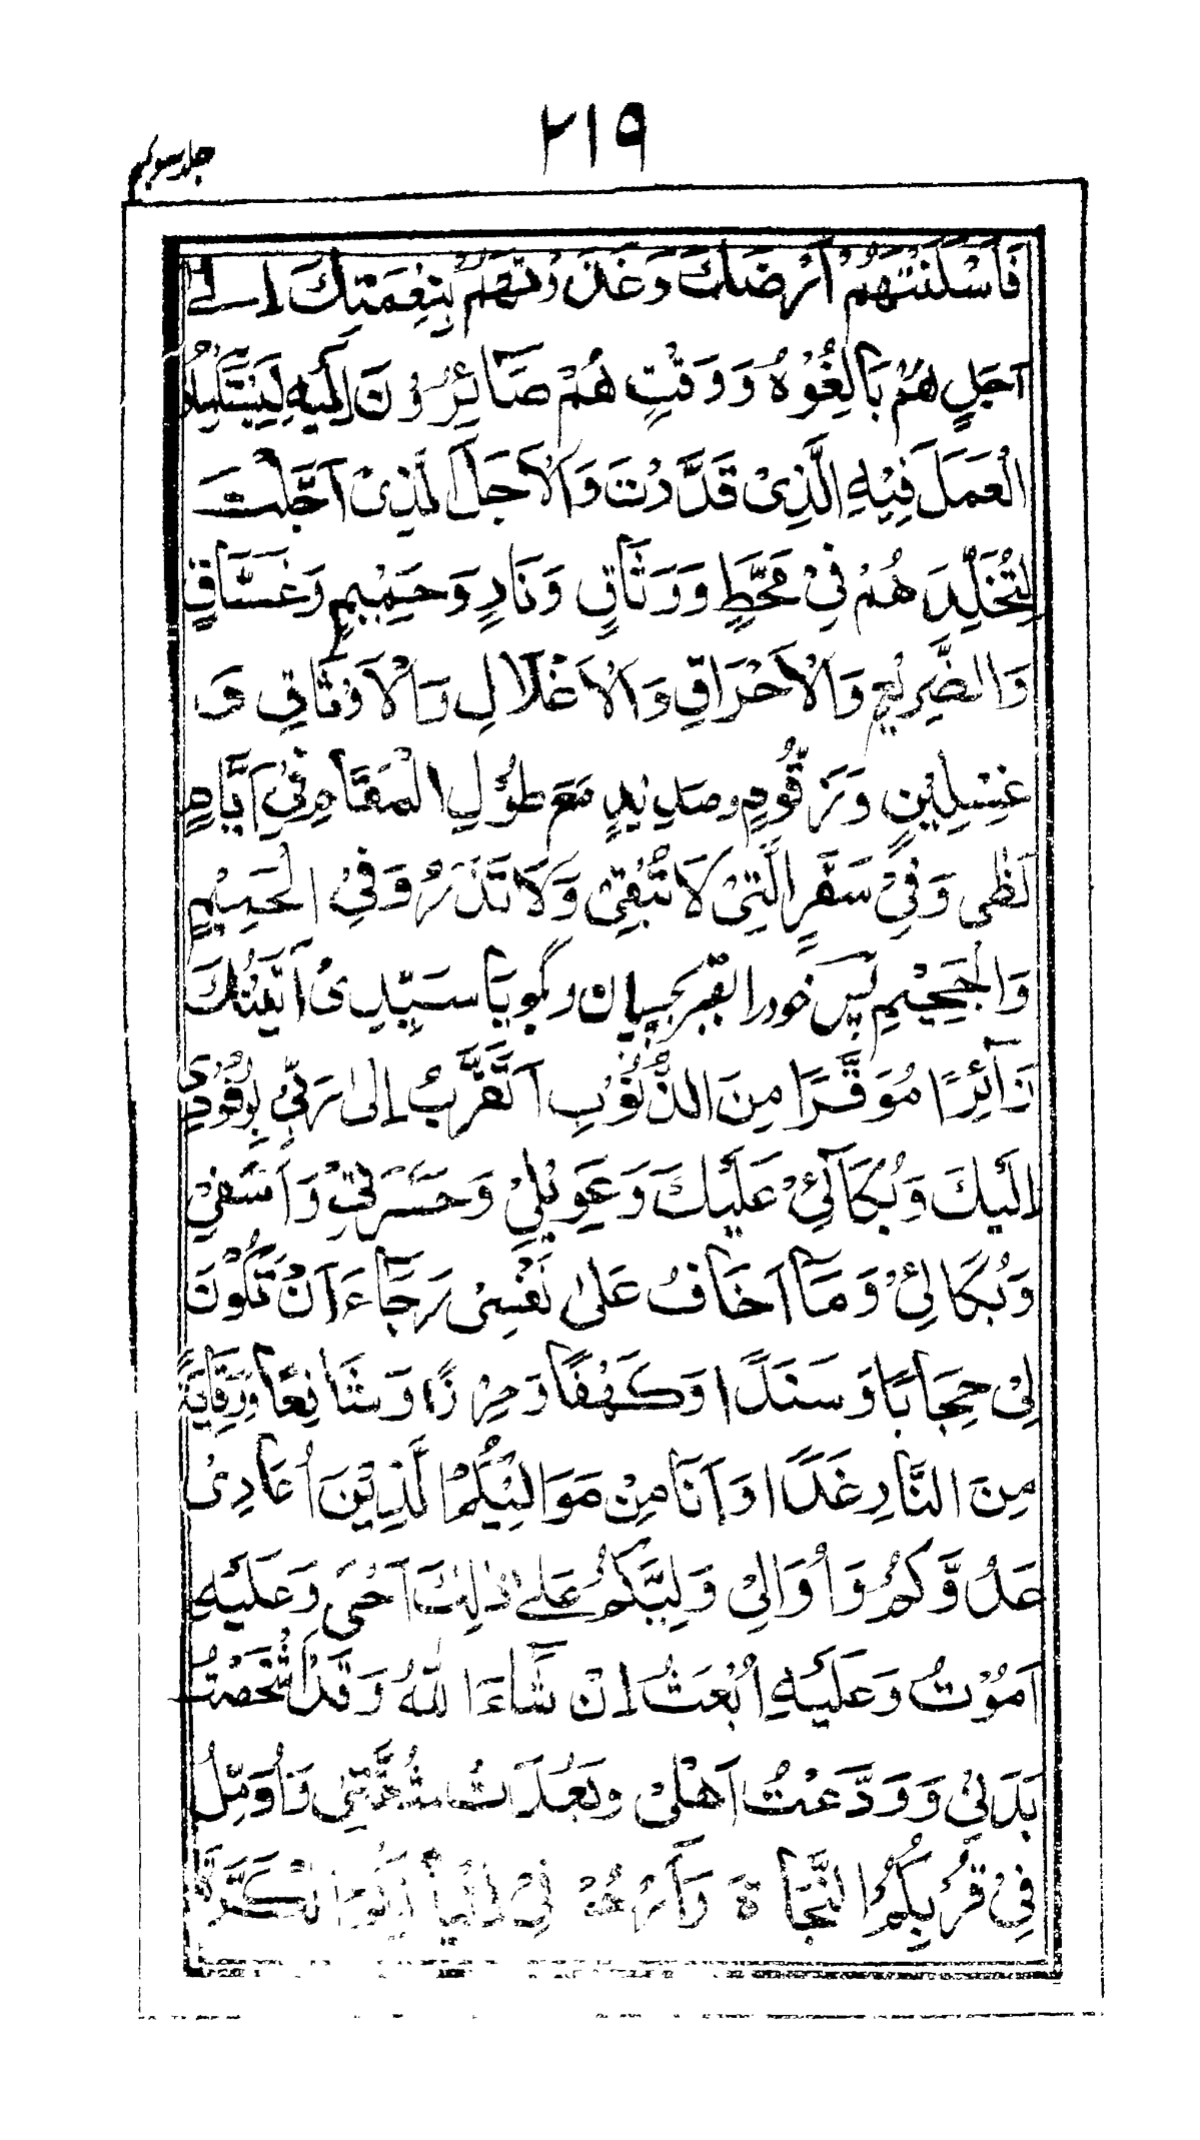 ٢١٩
جلد سوم
فَاَسْكَنْتَهُمْ اَرْضَكَ وَغَذَوْتَهُمْ بِنِعْمَتِكَ اِلىٰ
اَجَلٍ هُمْ بَالِغُوْهُ وَوَقْتٍ هُمْ صَآئِرُوْنَ اِلَيْهِ لِيَسْتَكْمِلُوا
الْعَمَلَ فِيْهِ الَّذِىْ قَدَّرْتَ وَالْاَجَلَ الَّذِىْ اَجَّلْتَ
لِتُخَلِّدَهُمْ فِىْ مَحَطٍّ وَوَثَاقٍ وَنَارٍ وَحَمِيْمٍ وَغَسَّاقٍ
وَالضَّرِيْعِ وَالْاَحْرَاقِ وَالْاَغْلَالِ وَالْاَوْثَاقِ وَ
غِسْلِيْنٍ وَزَقُّوْمٍ وَصَدِيْدٍ مَعَ طُوْلِ الْمَقَامِ فِىْ اَيَّامِ
لَظٰى وَفِىْ سَقَرِ الَّتِىْ لَا تُبْقِىْ وَلَا تَذَرُ وَفِىْ الْحَمِيْمِ
وَالْجَحِيْمِ پس خود را بقبر بچسپان و بگو يَا سَيِّدِىْ اَتَيْتُكَ
زَآئِرًا مُوَقَّرًا مِنَ الذُّنُوْبِ اَتَقَرَّبُ اِلىٰ رَبِّىْ بِوُفُوْدِىْ
اِلَيْكَ وَبُكَآئِىْ عَلَيْكَ وَعَوِيْلِىْ وَحَسْرَتِىْ وَاَسَفِىْ
وَبُكَائِىْ وَمَآ اَخَافُ عَلىٰ نَفْسِىْ رَجَاءَ اَنْ تَكُوْنَ
لِىْ حِجَابًا وَسَنَدًا وَكَهْفًا وَحِرْزًا وَشَافِعًا وَوِقَايَةً
مِنَ النَّارِ غَدًا وَاَنَا مِنْ مَوَالِيْكُمُ الَّذِيْنَ اُعَادِىْ
عَدُوَّكُمْ وَاُوَالِىْ وَلِيَّكُمْ عَلىٰ ذٰلِكَ اَحْىٰ وَعَلَيْهِ
اَمُوْتُ وَعَلَيْهِ اُبْعَثُ اِنْ شَآءَ اللهُ وَقَدْ اَشْخَصْتُ
بَدَنِىْ وَوَدَّعْتُ اَهْلِىْ وَبَعُدَتْ شُقَّتِىْ وَاُوَمِّلُ
فِىْ قُرْبِكُمُ النَّجَاةَ وَاَرْجُوْ فِىْ الْكَرَّةَ